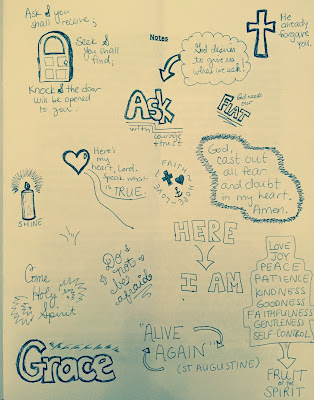 Ask & you
shall receive;
Seek &
you shall
find;
Knock & the door
will be opened
to you.
Notes
God desires
to give us
what we ask!
He
already
forgave
you.
ASK
with courage
& trust
God needs our
FIAT
Here's
my
heart, Lord.
Speak what
is TRUE.
FAITH
HOPE
LOVE
God,
cast out
all fear
and doubt
in my heart.
Amen.
SHINE
Come
Holy
Spirit
Do
not
be
afraid
HERE
I AM
LOVE
JOY
PEACE
PATIENCE
KINDNESS
GOODNESS
FAITHFULNESS
GENTLENESS
SELF-CONTROL
FRUIT
of the
SPIRIT
Grace
"ALIVE
AGAIN"
(ST AUGUSTINE)